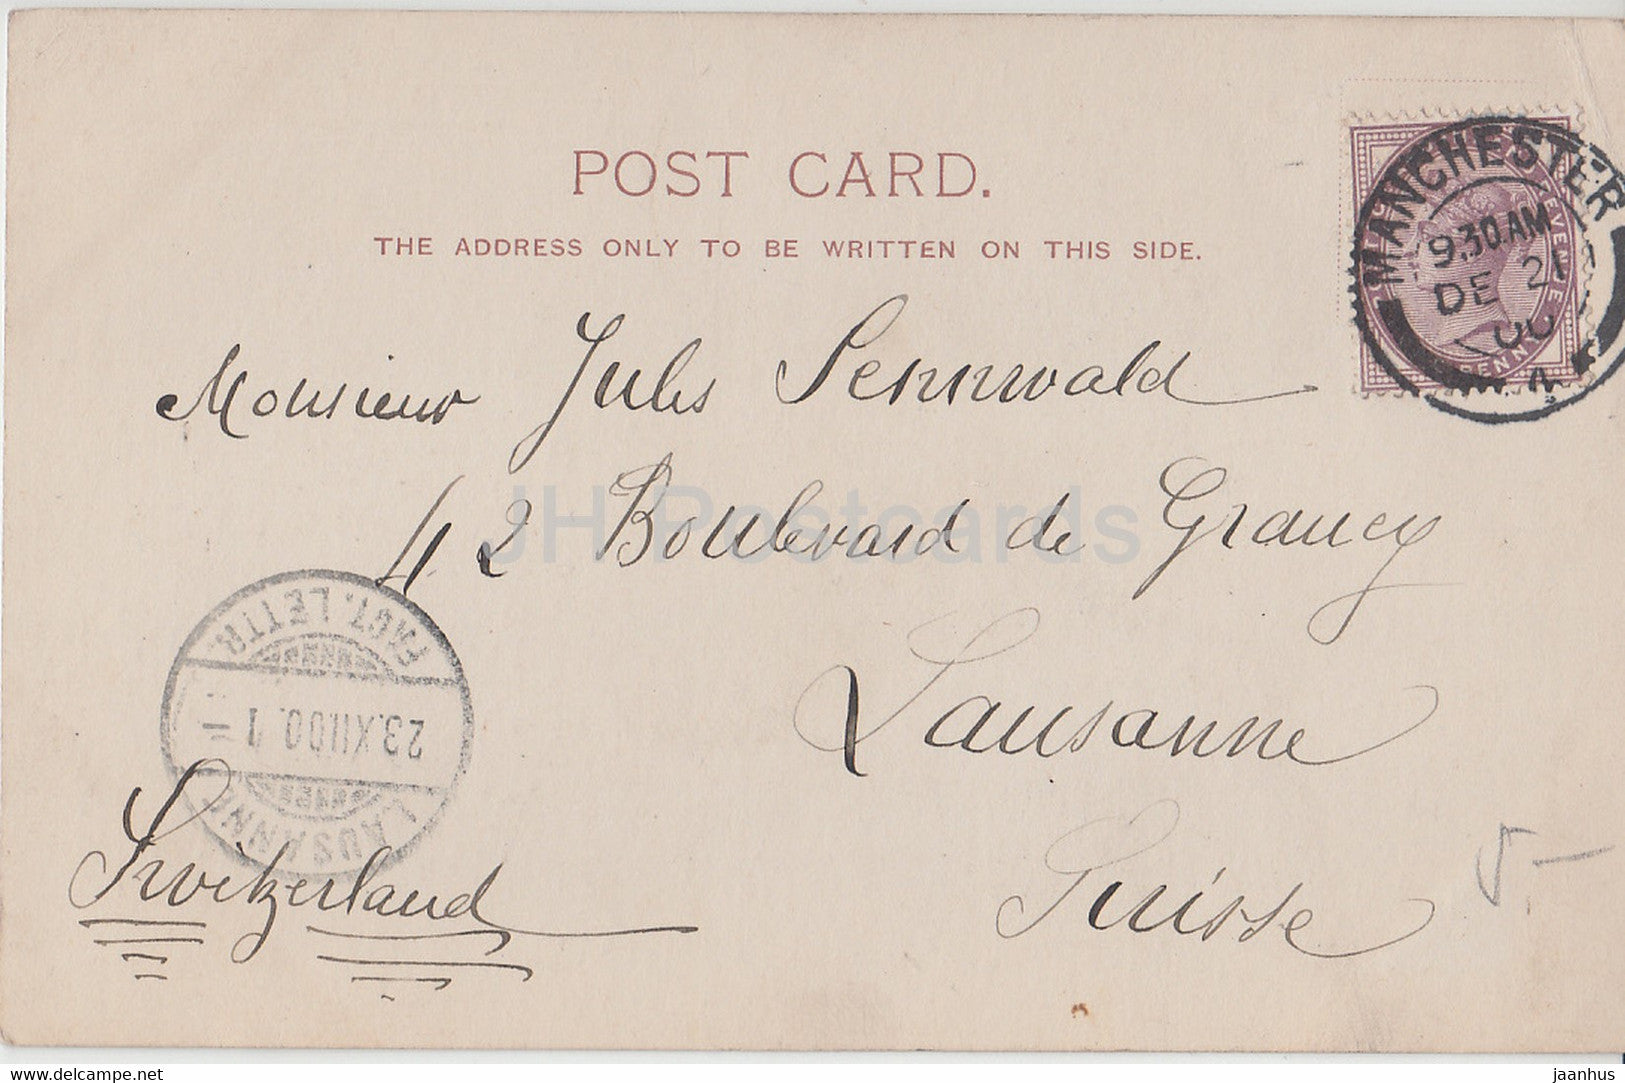 POST CARD.
THE ADDRESS ONLY TO BE WRITTEN ON THIS SIDE.
MANCHESTER
9.30 AM
DE 21
00
Monsieur Jules Sennwald
42 Boulevard de Grancy
Lausanne
Suisse
Switzerland
LAUSANNE
23.XII.00. 1
FACT. LETTR.
JH Postcards
delcampe.net
jaanhus